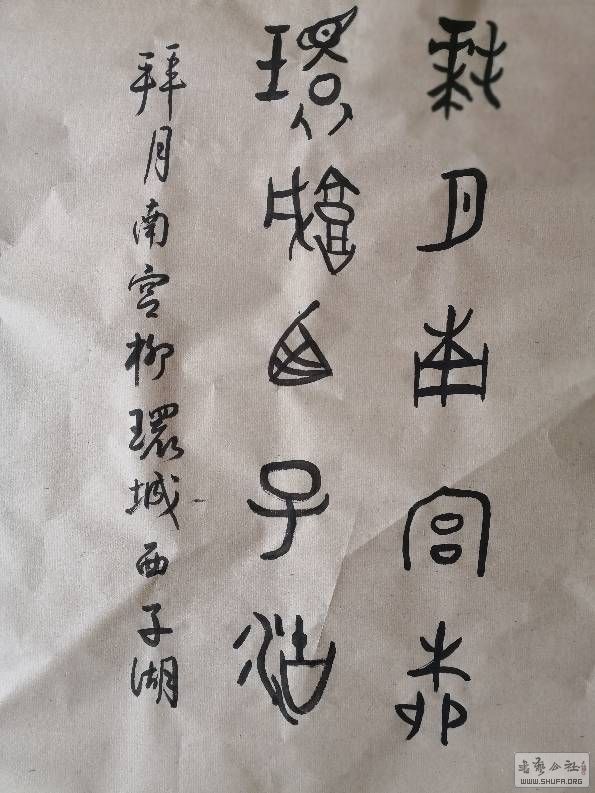 拜月南宫柳
環城西子湖
拜月南宫柳環城西子湖
书艺公社
WWW.SHUFA.ORG